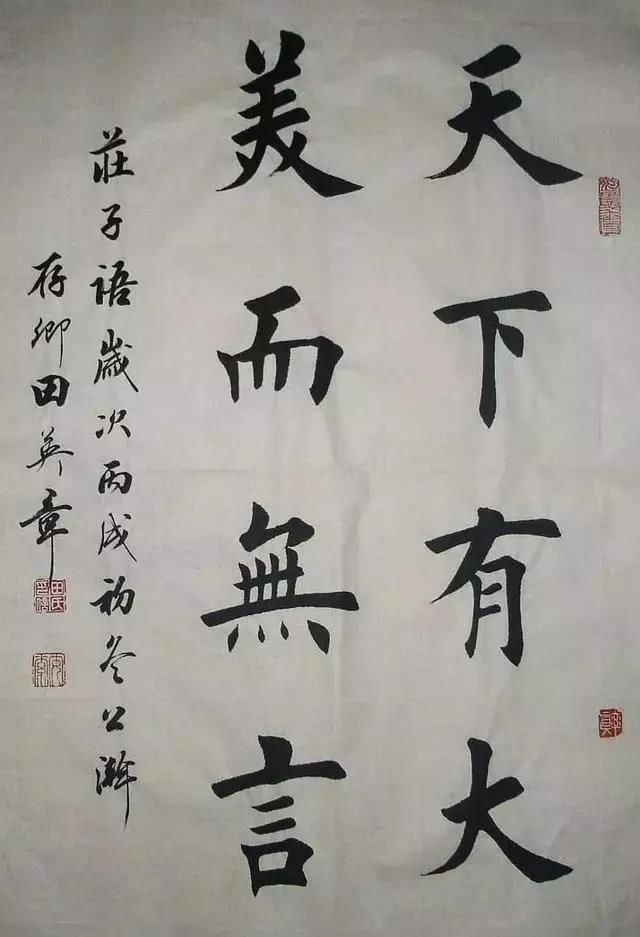 天下有大
美而無言
莊子語歲次丙戌初冬公瀚
存卿田英章